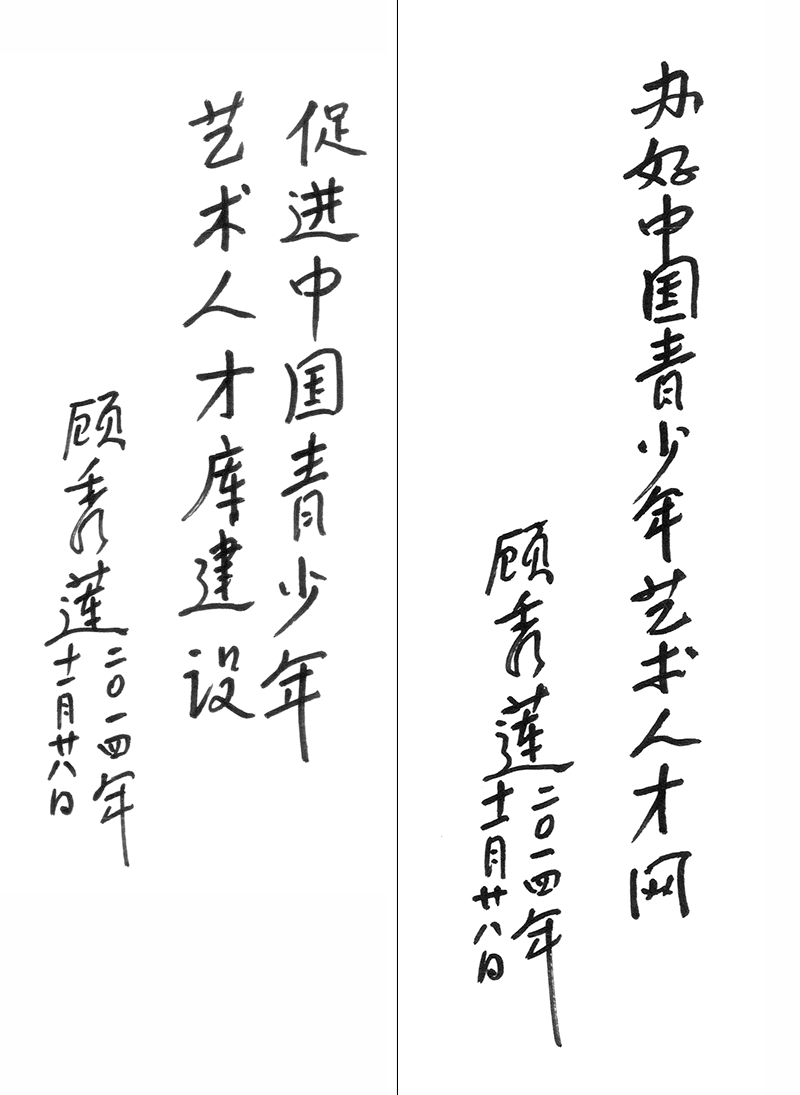 促进中国青少年
艺术人才库建设
顾秀莲
二〇一四年
十一月廿八日
办好中国青少年艺术人才网
顾秀莲
二〇一四年
十一月廿八日